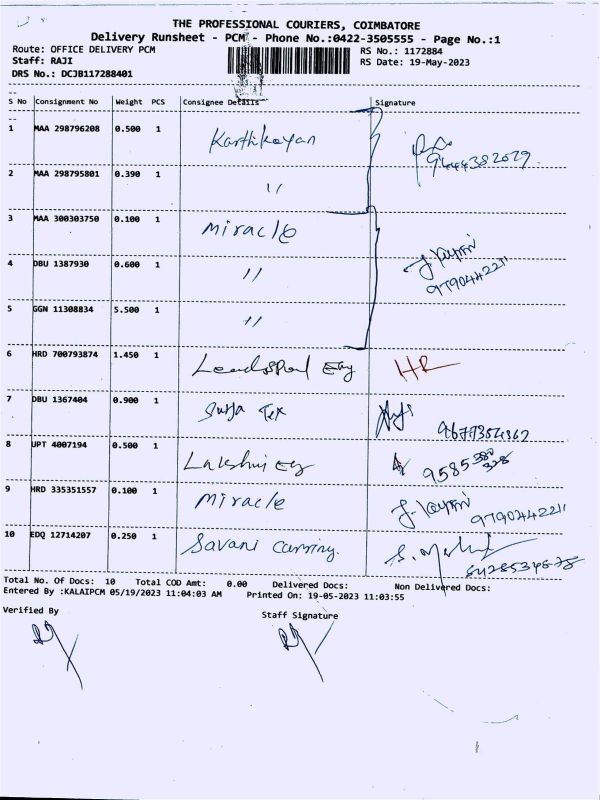 THE PROFESSIONAL COURIERS, COIMBATORE
Delivery Runsheet - PCM - Phone No.:0422-3505555 - Page No.:1
Route: OFFICE DELIVERY PCM RS No.: 1172884
Staff: RAJI RS Date: 19-May-2023
DRS No.: DCJB117288401
S No Consignment No Weight PCS Consignee Details Signature
1 MAA 298796208 0.500 1 Karthikeyan
9444382029
2 MAA 298795801 0.390 1 "
3 MAA 300303750 0.100 1 Miracle
4 DBU 1387930 0.600 1 "
9790442211
5 GGN 11308834 5.500 1 "
6 HRD 700793874 1.450 1 HR
7 DBU 1367404 0.900 1 Surya Tex
8 UPT 4007194 0.500 1 Lakshmi Eg
9 HRD 335351557 0.100 1 Miracle
9790442211
10 EDQ 12714207 0.250 1 Savani Carrring.
Total No. Of Docs: 10 Total COD Amt: 0.00 Delivered Docs: Non Delivered Docs:
Entered By :KALAIPCM 05/19/2023 11:04:03 AM Printed On: 19-05-2023 11:03:55
Verified By Staff Signature